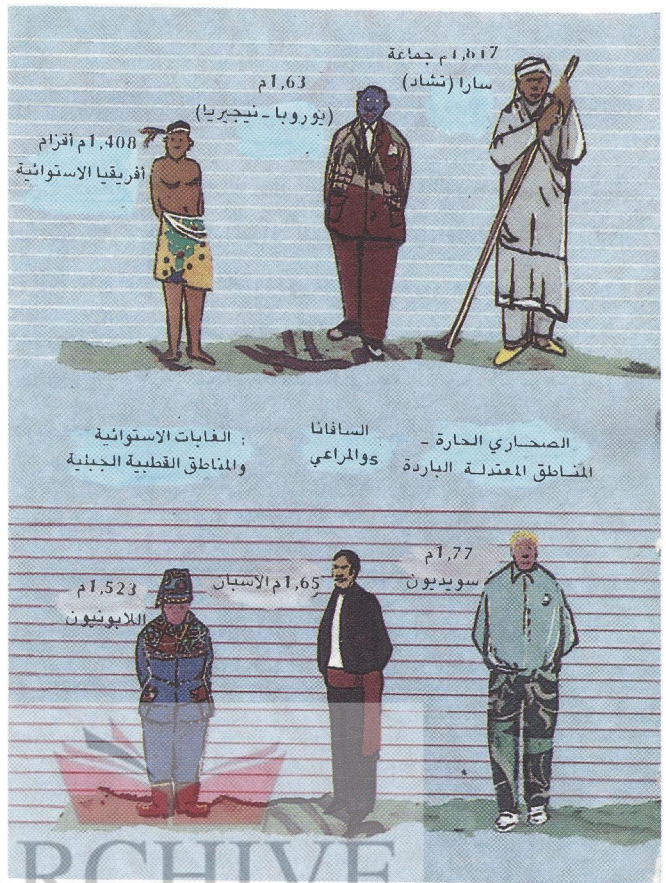 1,817م جماعة
سارا (تشاد)
1,63م
(يوروبا - نيجيريا)
1,408م أقزام
أفريقيا الاستوائية
الصحاري الحارة -
المناطق المعتدلة الباردة
السافانا
والمراعي
: الغابات الاستوائية
والمناطق القطبية الجبلية
1,77م
سويديون
1,65م الاسبان
1,523م
اللابونيون
RCHIVE